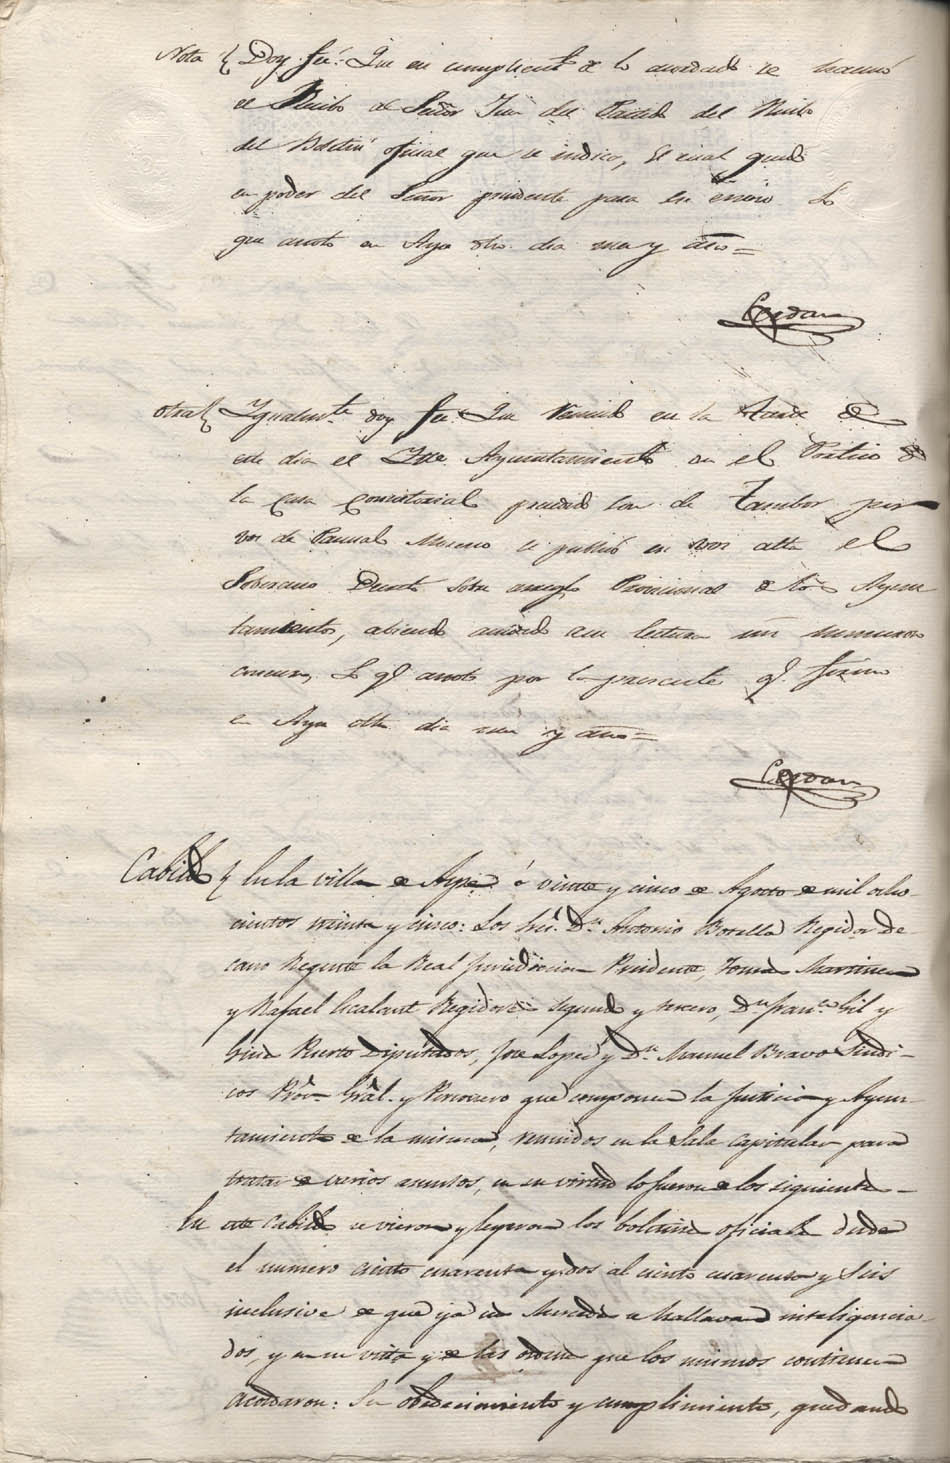 Nota { Doy fé: Que en cumplimto. de lo acordado se
el Recibo al Señor Juez del Partido del Recibo
del Boletin oficial que se indico, el cual quedó
en poder del Señor presidente para su envio Lo
que anoto en Aspe dho. dia mes y año =
Cerdan
Otra { Igualmte. doy fé: Que reunido en la tarde de
este dia el Itre. Ayuntamiento en el Portico de
la Casa Consistorial precedido son de Tambor por
voz de Pascual Moreno se publicó en voz alta el
Soberano Decreto sobre arreglo Provicional de los Ayun
tamientos, abiendo acudido a su lectura un numeroso
concurso, Lo qe. anoto por la presente qe. firmo
en Aspe dho. dia mes y año =
Cerdan
Cabildo { En la villa de Aspe á veinte y cinco de Agosto de mil ocho-
cientos treinta y cinco: Los Sres. Dn. Antonio Botella Regidor de-
cano Regente la Real Jurisdiccion Presidente, Tomas Martinez
y Rafael Escalant Regidores segundo y tercero, Dn. Franco. Gil y
Gines Puerto Diputados, Jose Lopez y Dn. Manuel Bravo Sindi-
cos Pror. Gral. y Personero que componen la Justicia y Ayun-
tamiento de la misma, reunidos en la Sala Capitular para
tratar de varios asuntos, en su virtud lo fueron de los siguientes -
En este Cabildo se vieron y leyeron los boletines oficiales desde
el numero ciento cuarenta y dos al ciento cuarenta y seis
inclusive de que ya sus Mercedes se hallavan inteligencia-
dos, y en su vista y de las ordenes que los mismos contienen
Acordaron: Su obedecimiento y cumplimiento, quedando